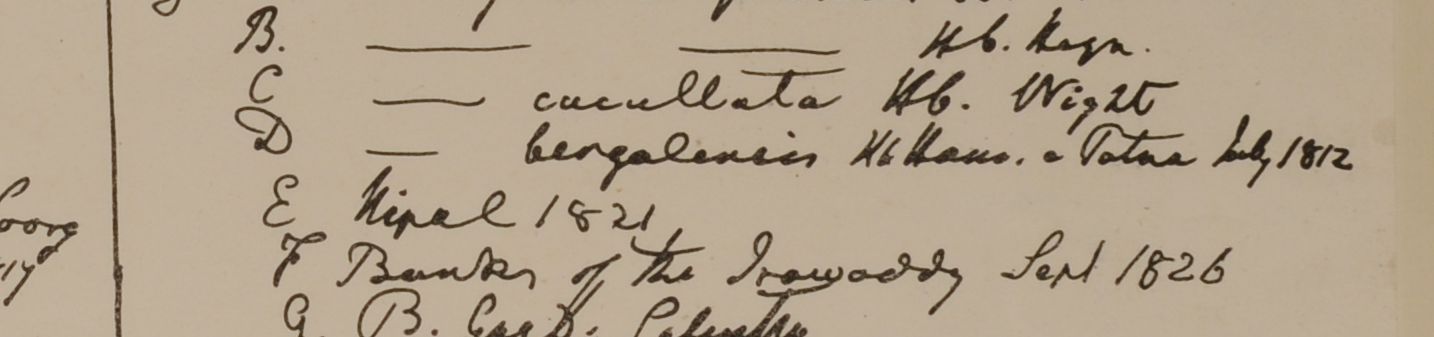 B. —— —— Hb. Heyn.
C —— cucullata Hb. Wight
D — bengalensis Hb Ham. e Patna July 1812
E Nipal 1821
F Banks of the Irawaddy Sept 1826
G. B.